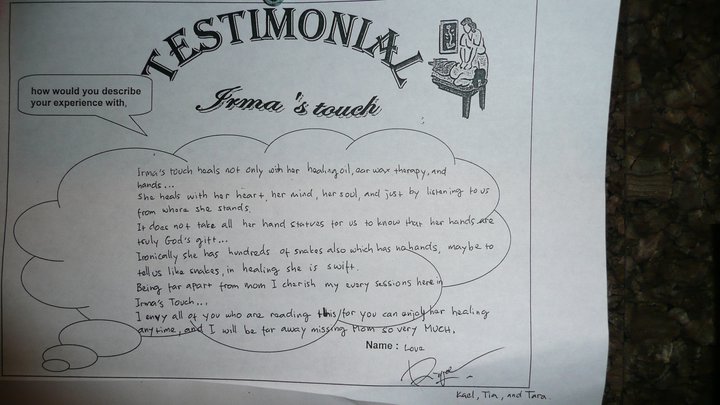 TESTIMONIAL
Irma's touch
how would you describe
your experience with,
Irma's touch heals not only with her healing oil, ear wax therapy, and
hands...
She heals with her heart, her mind, her soul, and just by listening to us
from where she stands.
It does not take all her hand statues for us to know that her hands are
truly God's gift...
Ironically she has hundreds of snakes also which has no hands, maybe to
tell us like snakes, in healing she is swift.
Being far apart from mom I cherish my every sessions here in
Irma's Touch...
I envy all of you who are reading this for you can enjoy her healing
anytime, and I will be far away missing Mom so very MUCH.
Name : Love
Kael, Tia, and Tara